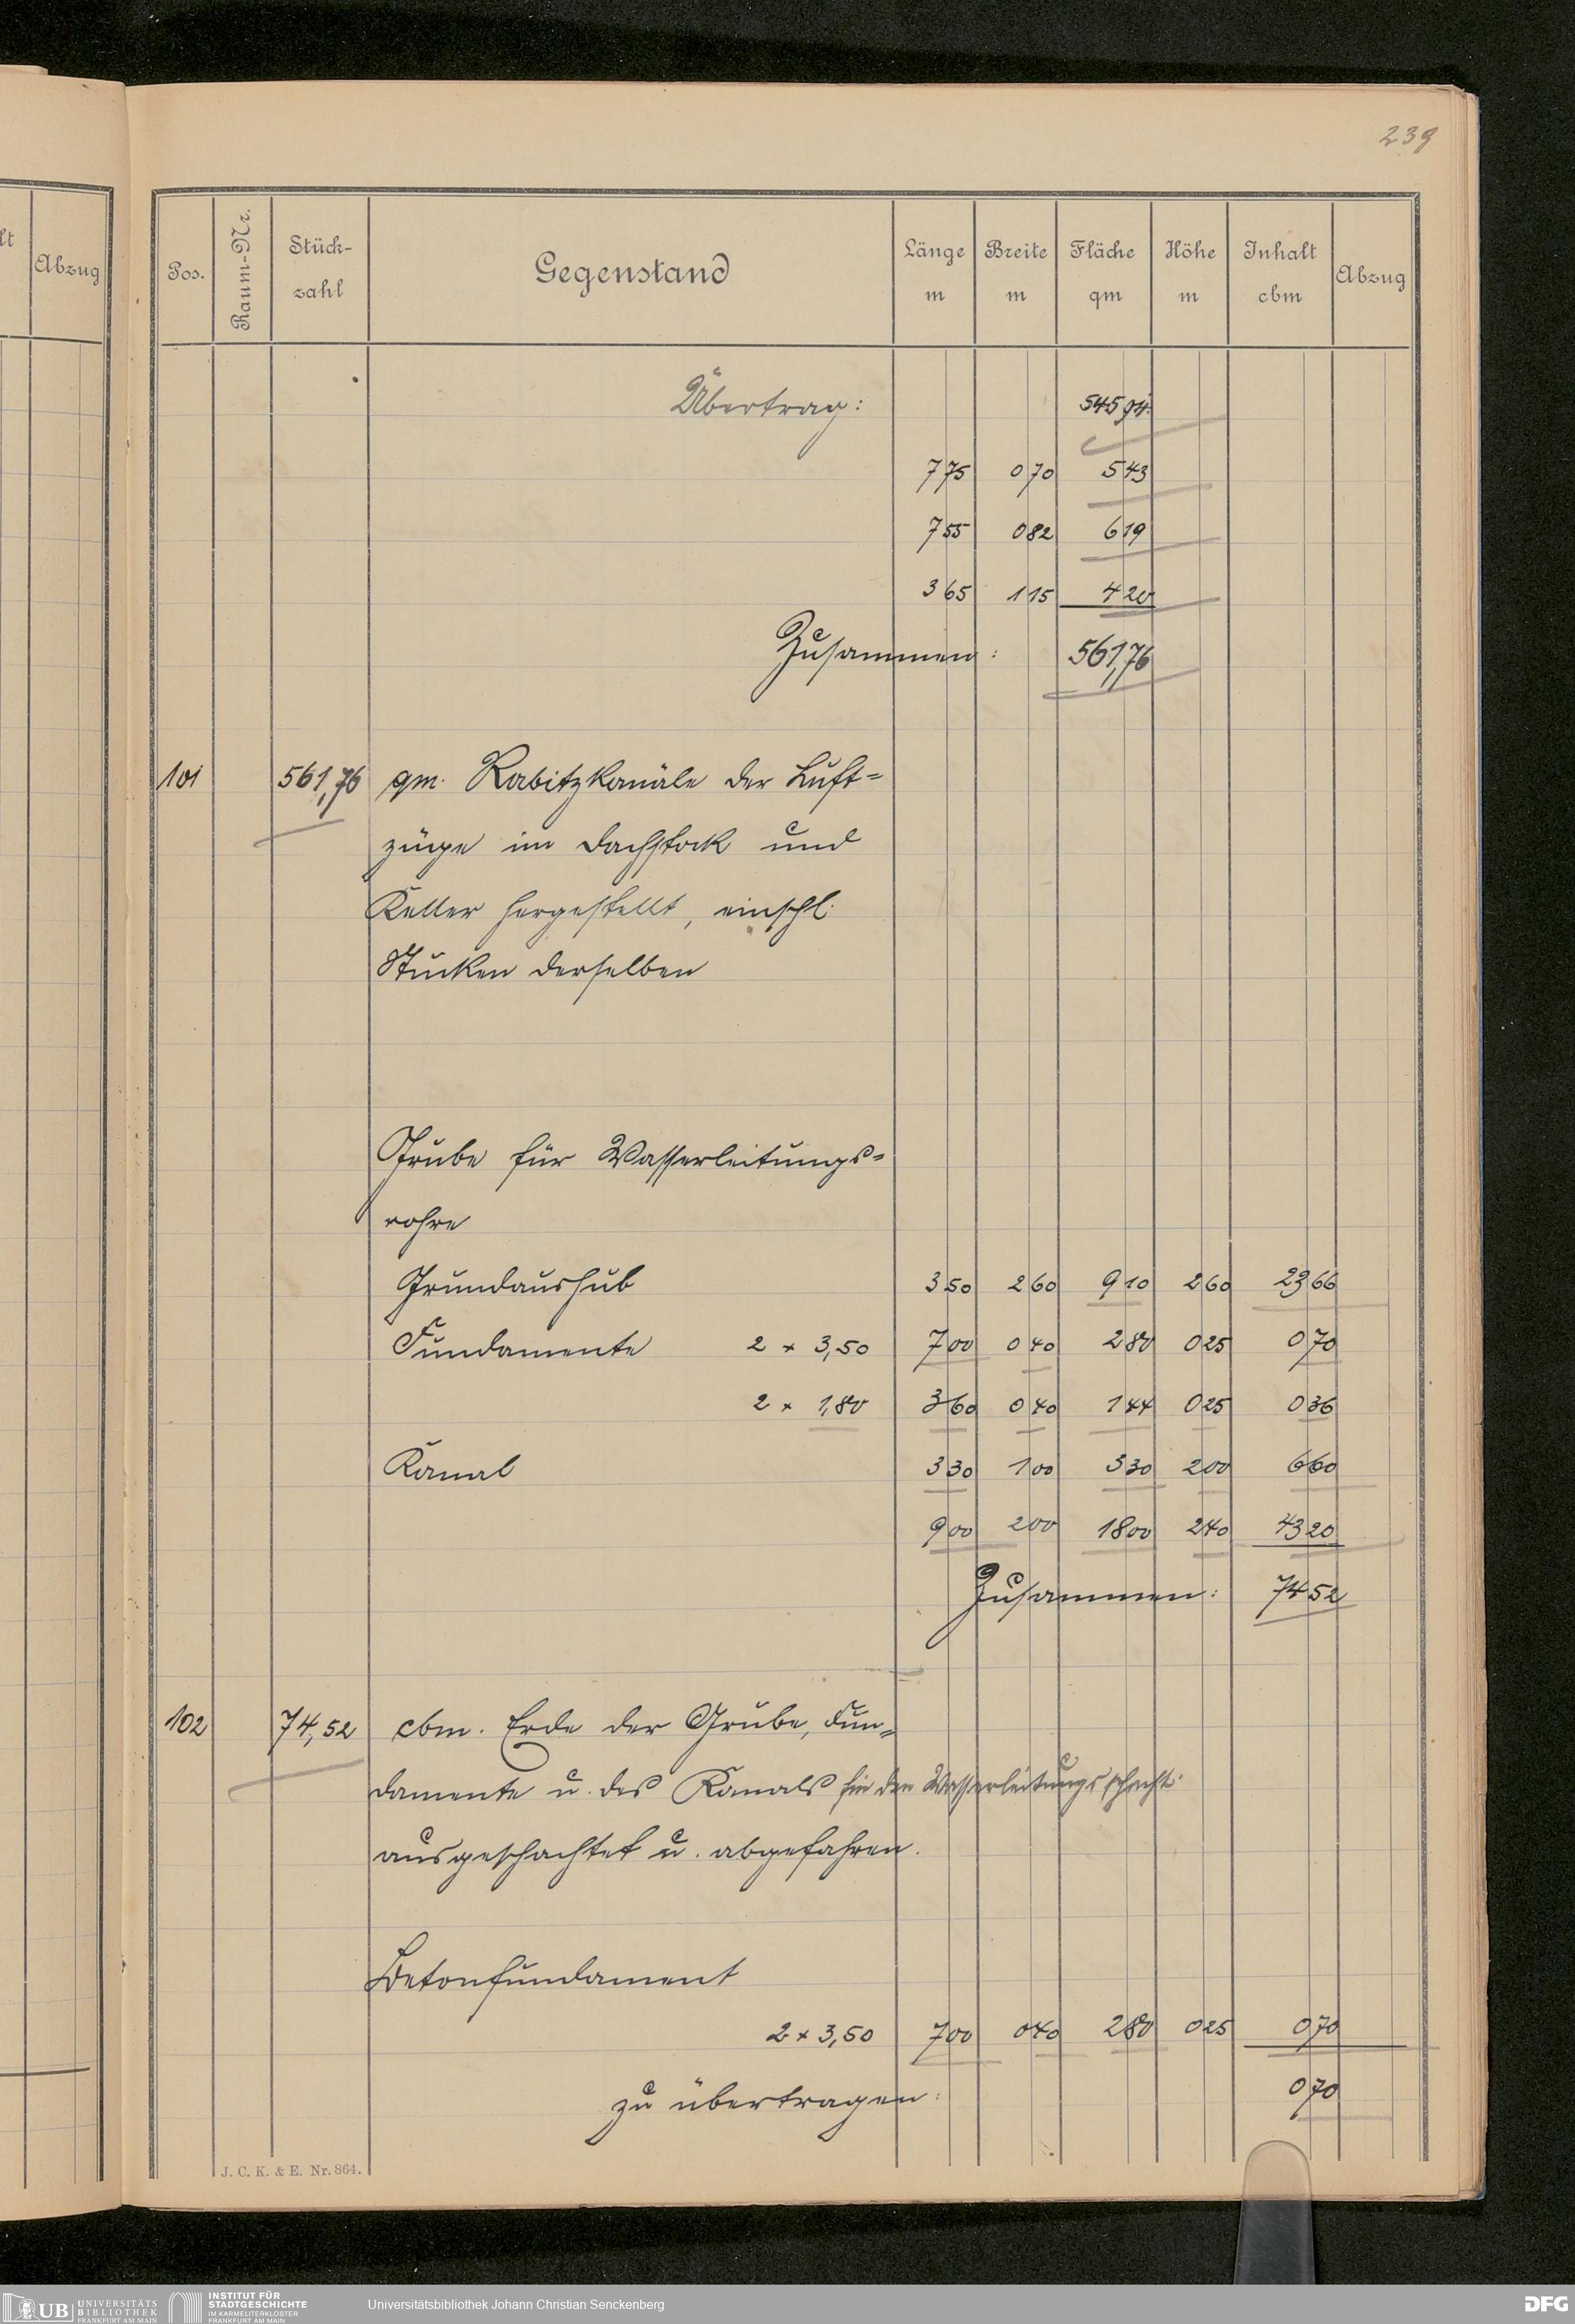 239
lt
Abzug
Pos. Raum-Nr. Stück-zahl Gegenstand Länge m Breite m Fläche qm Höhe m Inhalt cbm Abzug
Übertrag: 545 94
7 75 0 70 5 43
7 55 0 82 6 19
3 65 1 15 4 20
Zusammen: 561,76
101 561,76 qm. Rabitzkanäle der Luft=
züge im Dachstock und
Keller hergestellt, einschl.
Stucken derselben
Grube für Wasserleitungs=
rohre
Grundaushub 3 50 2 60 9 10 2 60 23 66
Fundamente 2 × 3,50 7 00 0 40 2 80 0 25 0 70
2 × 1,80 3 60 0 40 1 44 0 25 0 36
Kanal 3 30 1 00 3 30 2 00 6 60
9 00 2 00 18 00 2 40 43 20
Zusammen: 74 52
102 74,52 cbm. Erde der Grube, Fun=
damente u. des Kanals für den Wasserleitungsschacht
ausgeschachtet u. abgefahren.
Betonfundament
2 × 3,50 7 00 0 40 2 80 0 25 0 70
zu übertragen: 0 70
J. C. K. & E. Nr. 864.
UB UNIVERSITÄTS
BIBLIOTHEK
FRANKFURT AM MAIN
INSTITUT FÜR
STADTGESCHICHTE
IM KARMELITERKLOSTER
FRANKFURT AM MAIN
Universitätsbibliothek Johann Christian Senckenberg
DFG